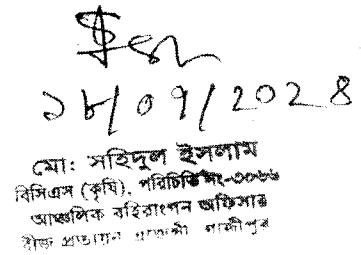 ১৮/০৭/২০২৪
মো: সহিদুল ইসলাম
বিসিএস (কৃষি), পরিচিতি নং-৩০৬৬
আঞ্চলিক বহিরাংগন অফিসার
বীজ প্রত্যয়ন এজেন্সী গাজীপুর